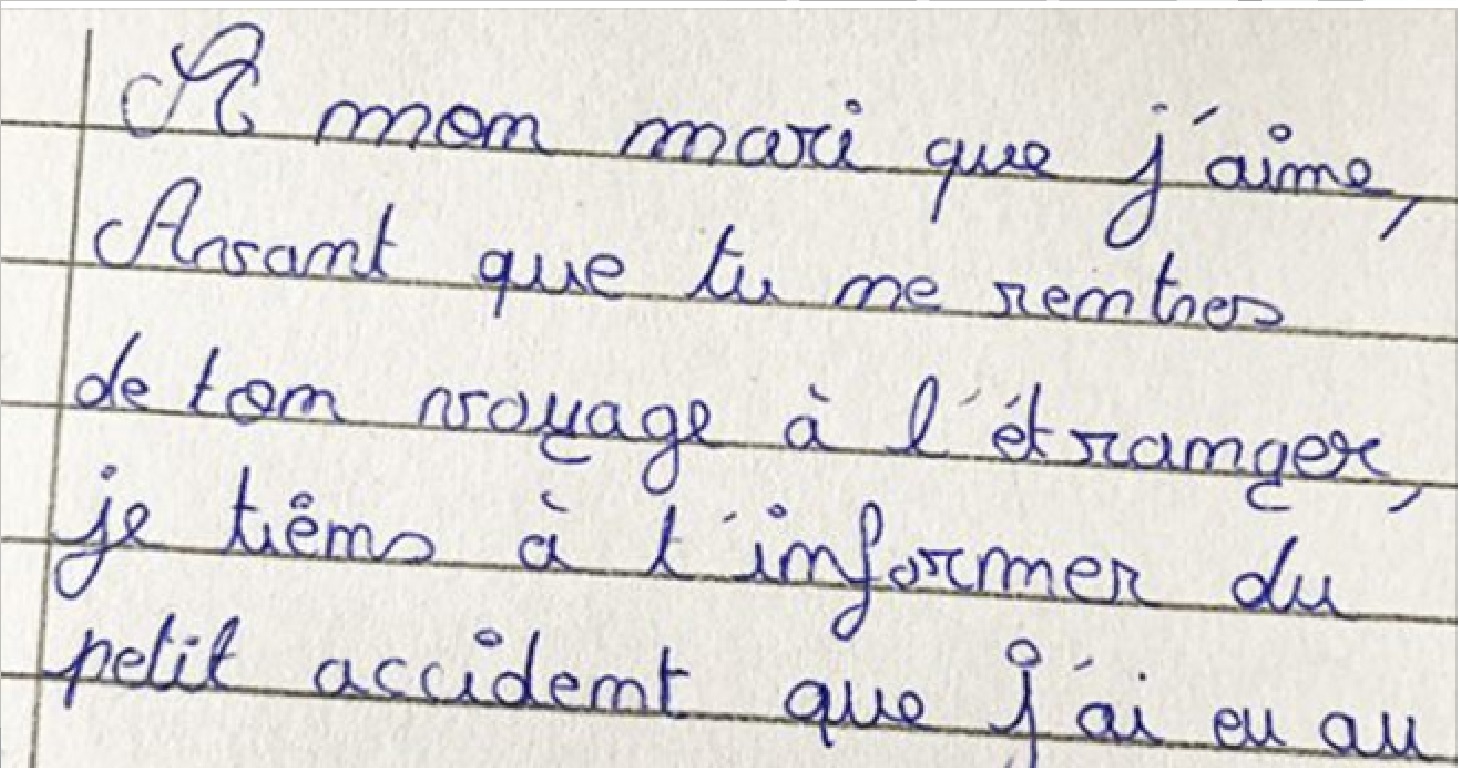 A mon mari que j'aime,
Avant que tu ne rentres
de ton voyage à l'étranger,
je tiens à t'informer du
petit accident que j'ai eu au